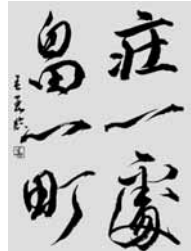 莊一處
畠一町